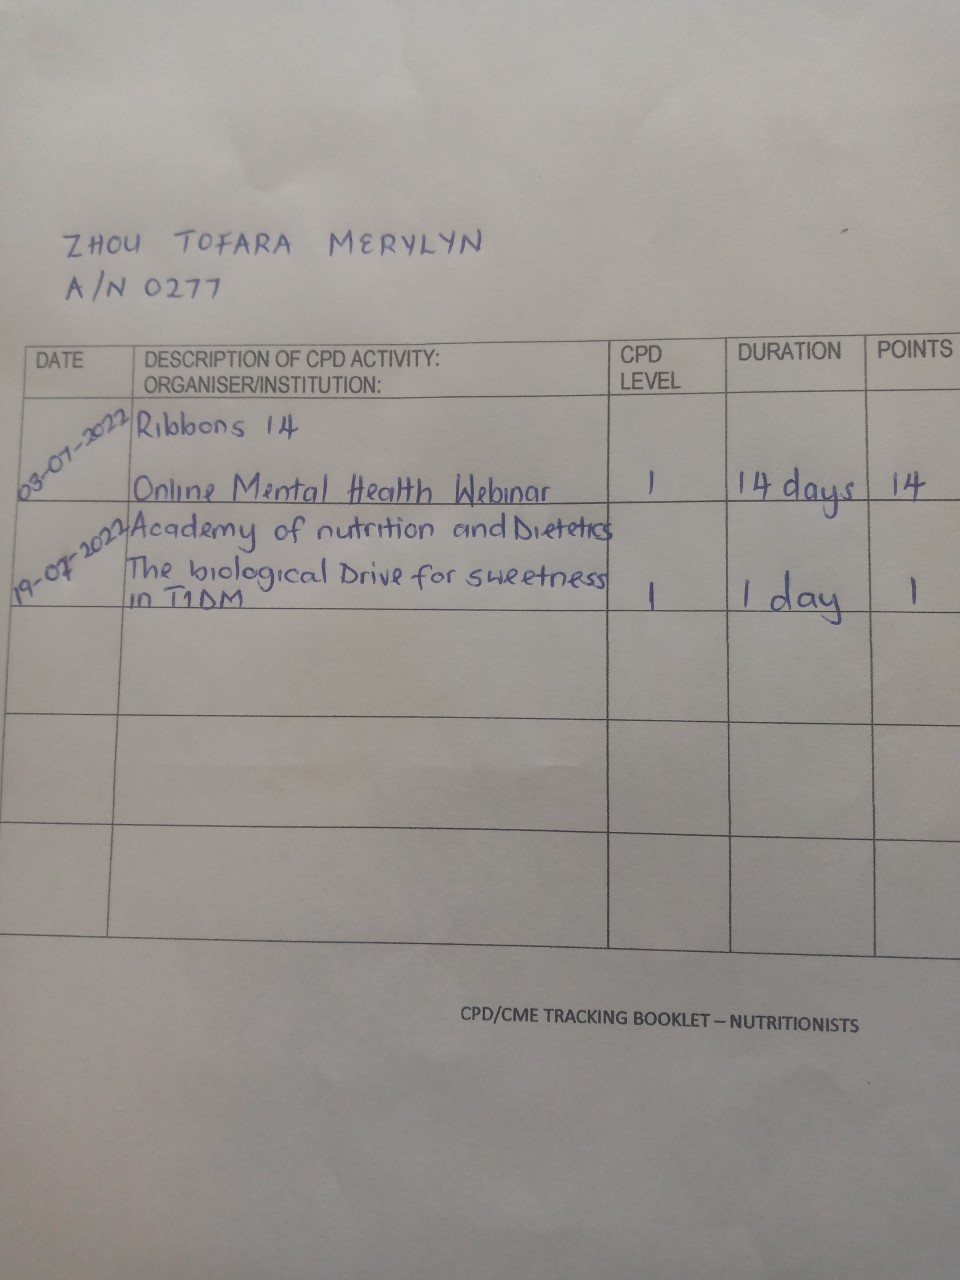 ZHOU TOFARA MERYLYN
A/N 0277
DATE DESCRIPTION OF CPD ACTIVITY: CPD DURATION POINTS
ORGANISER/INSTITUTION: LEVEL
03-07-2022 Ribbons 14
Online Mental Health Webinar 1 14 days 14
19-07-2022 Academy of nutrition and Dietetics
The biological Drive for sweetness
in T1DM 1 1 day 1
CPD/CME TRACKING BOOKLET – NUTRITIONISTS